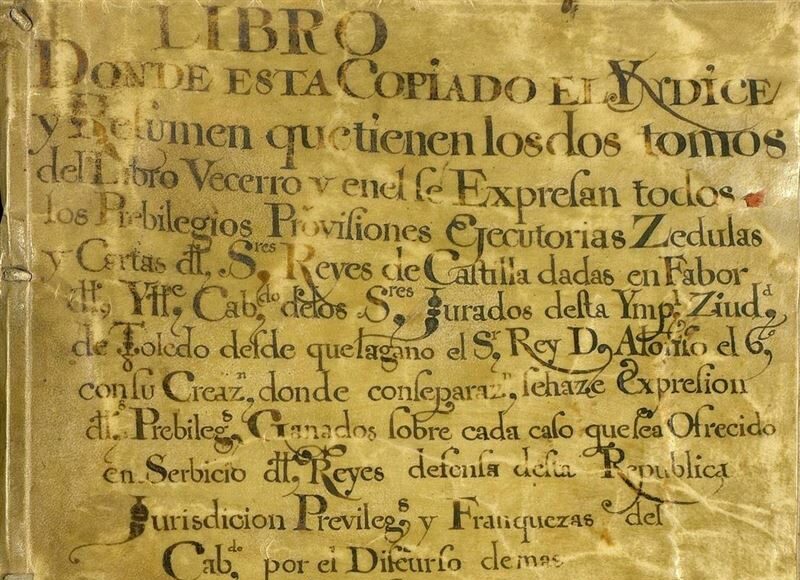 LIBRO
DONDE ESTA COPIADO EL YNDICE
y Resumen que tienen los dos tomos
del Libro Vecerro y enel se Expresan todos
los Prebilegios Provisiones Ejecutorias Zedulas
y Cartas dl, S.res Reyes de Castilla dadas en Fabor
dl, Ytt.e Cab.do delos S.res Jurados desta Ymp.l Ziud.d
de Toledo desde que lagano el S.r Rey D, Alonso el 6,
consu Creaz.n, donde conseparaz.n, sehaze Expresion
dl.s Prebileg.s, Ganados sobre cada caso que sea Ofrecido
en Serbicio dl, Reyes defensa desta Republica
Jurisdicion Previleg.s y Franquezas del
Cab.do, por el Discurso de mas